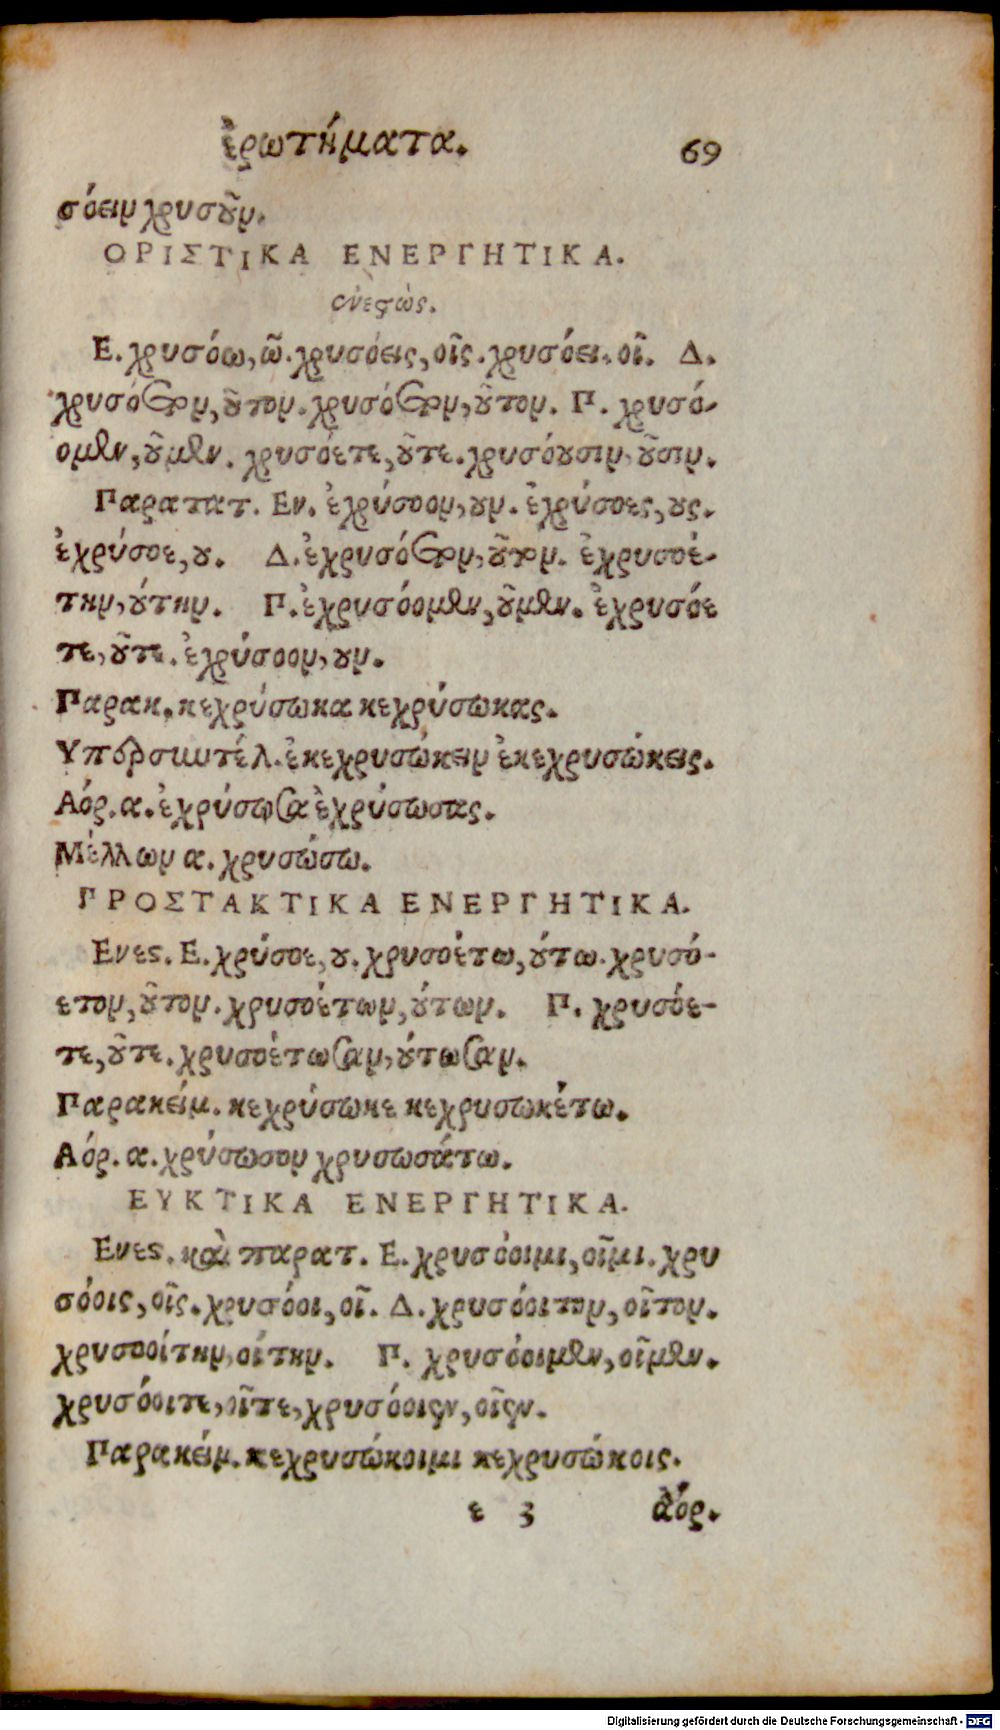 ἐρωτήματα. 69
σόειν χρυσοῦν.
ΟΡΙΣΤΙΚΑ ΕΝΕΡΓΗΤΙΚΑ.
ἐνεστώς.
Ε. χρυσόω, ῶ. χρυσόεις, οῖς. χρυσόει, οῖ. Δ.
χρυσόετον, οῦτον. χρυσόετον, οῦτον. Π. χρυσό-
ομεν, οῦμεν. χρυσόετε, οῦτε. χρυσόουσιν, οῦσιν.
Παρατατ. Εν. ἐχρύσοον, ουν. ἐχρύσοες, ους.
ἐχρύσοε, ου. Δ. ἐχρυσόετον, οῦτον. ἐχρυσοέ-
την, ούτην. Π. ἐχρυσόομεν, οῦμεν. ἐχρυσόε
τε, οῦτε. ἐχρύσοον, ουν.
Παρακ. κεχρύσωκα κεχρύσωκας.
Υπερσυντέλ. ἐκεχρυσώκειν ἐκεχρυσώκεις.
Αόρ. α. ἐχρύσωσα ἐχρύσωσας.
Μέλλων α. χρυσώσω.
ΠΡΟΣΤΑΚΤΙΚΑ ΕΝΕΡΓΗΤΙΚΑ.
Ενεστ. Ε. χρύσοε, ου. χρυσοέτω, ούτω. χρυσό-
ετον, οῦτον. χρυσοέτων, ούτων. Π. χρυσόε-
τε, οῦτε. χρυσοέτωσαν, ούτωσαν.
Παρακείμ. κεχρύσωκε κεχρυσωκέτω.
Αόρ. α. χρύσωσον χρυσωσάτω.
ΕΥΚΤΙΚΑ ΕΝΕΡΓΗΤΙΚΑ.
Ενεστ. καὶ παρατ. Ε. χρυσόοιμι, οῖμι. χρυ
σόοις, οῖς. χρυσόοι, οῖ. Δ. χρυσόοιτον, οῖτον.
χρυσοοίτην, οίτην. Π. χρυσόοιμεν, οῖμεν.
χρυσόοιτε, οῖτε, χρυσόοιεν, οῖεν.
Παρακείμ. κεχρυσώκοιμι κεχρυσώκοις.
ε 3 ἀόρ.
Digitalisierung gefördert durch die Deutsche Forschungsgemeinschaft - DFG